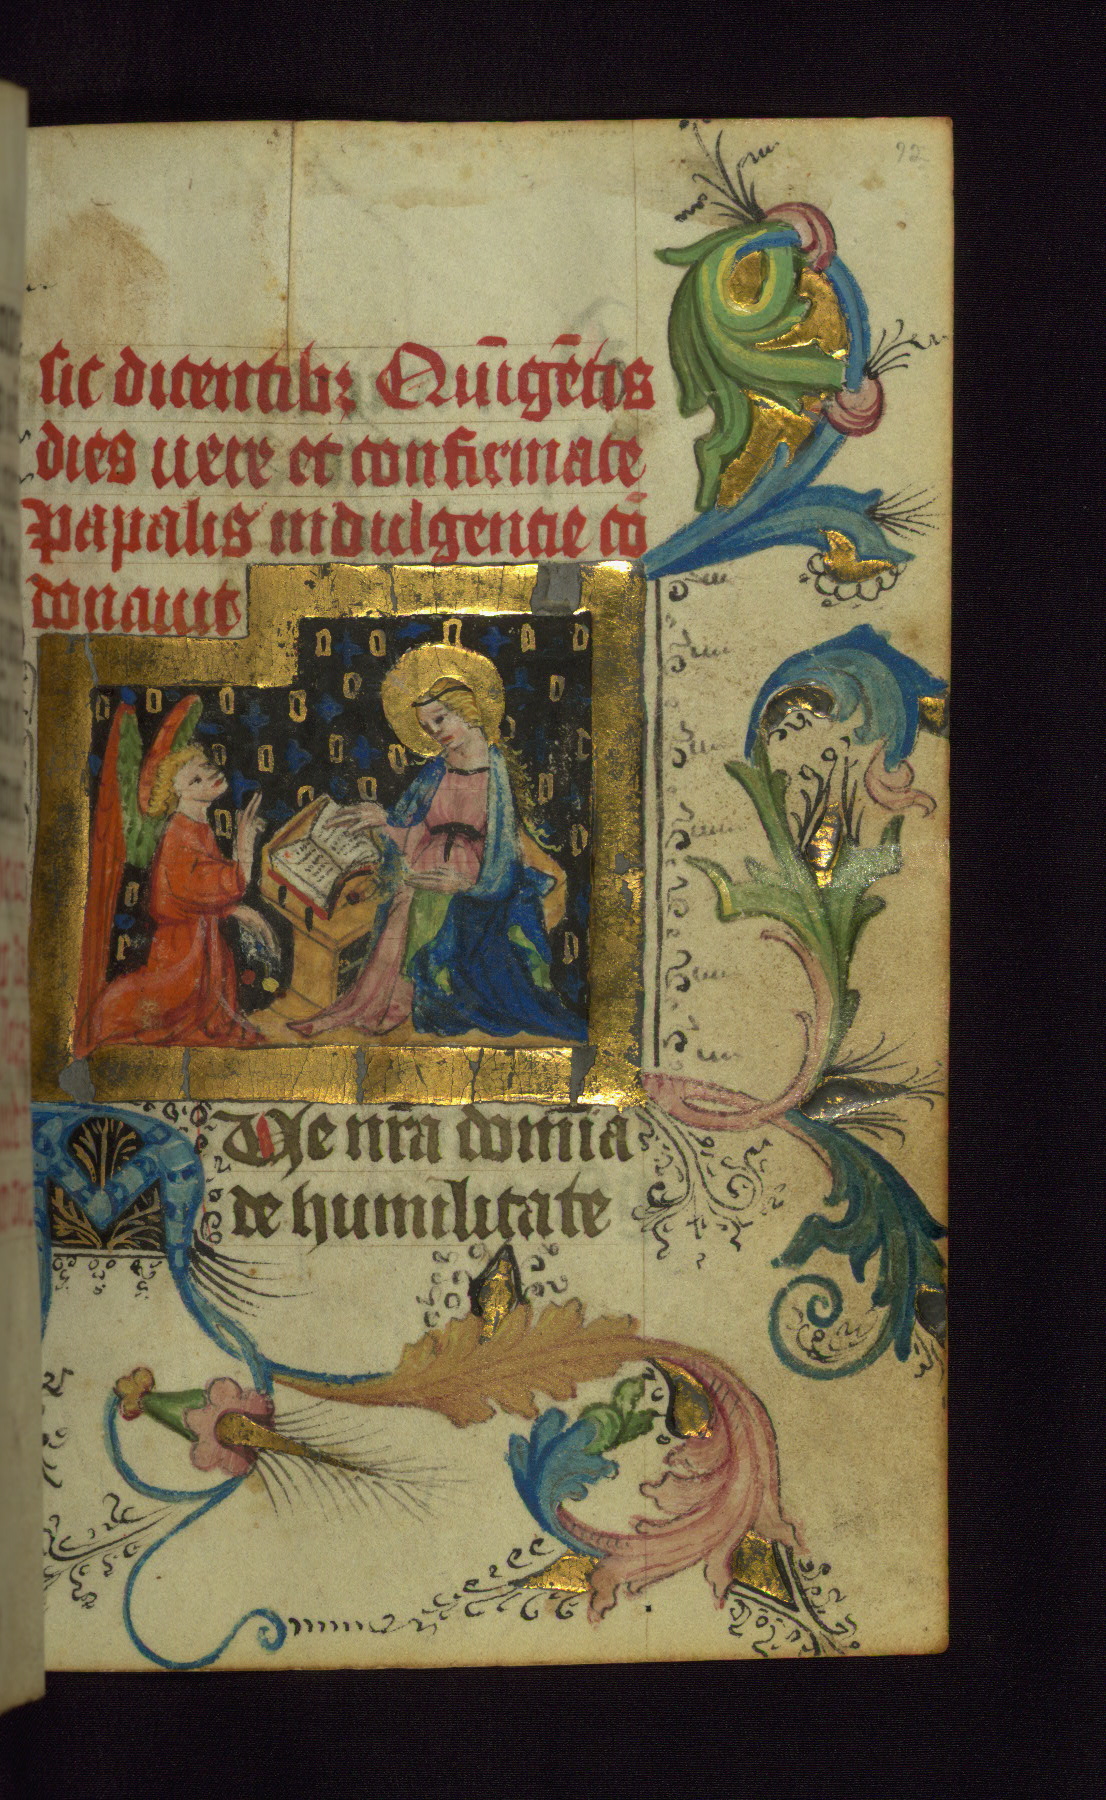 92
sic dicentibꝫ Quīgētis
dies uere et confirmate
Papalis indulgentie cō
donauit
Aue nr̄a domīa
de humilitate